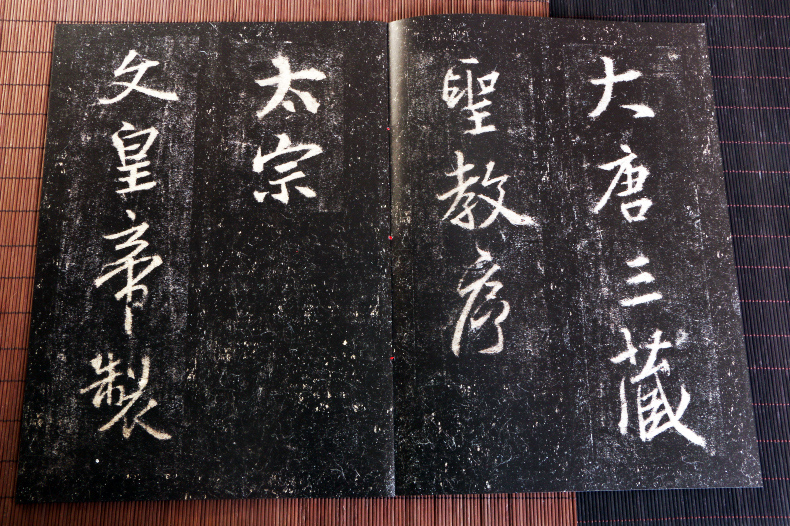 大唐三藏
聖教序
太宗
文皇帝製